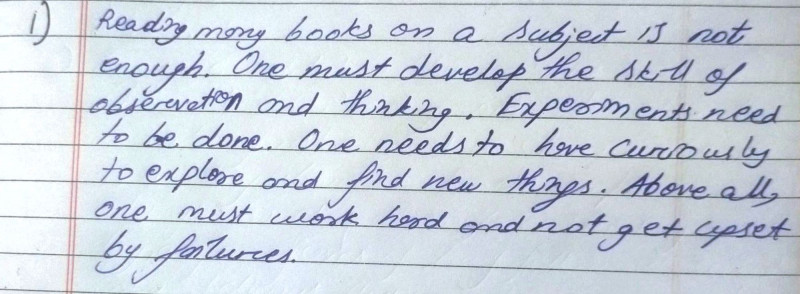 i) Reading many books on a subject is not
enough. One must develop the skill of
observation and thinking. Experiments need
to be done. One needs to have curiously
to explore and find new things. Above all,
one must work hard and not get upset
by failures.